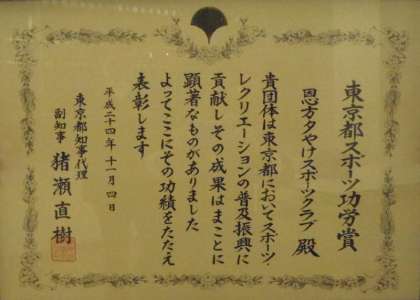 東京都スポーツ功労賞
恩方夕やけスポーツクラブ 殿
貴団体は東京都においてスポーツ・
レクリエーションの普及振興に
貢献しその成果はまことに
顕著なものがありました
よってここにその功績をたたえ
表彰します
平成二十四年十一月四日
東京都知事代理
副知事 猪瀬直樹